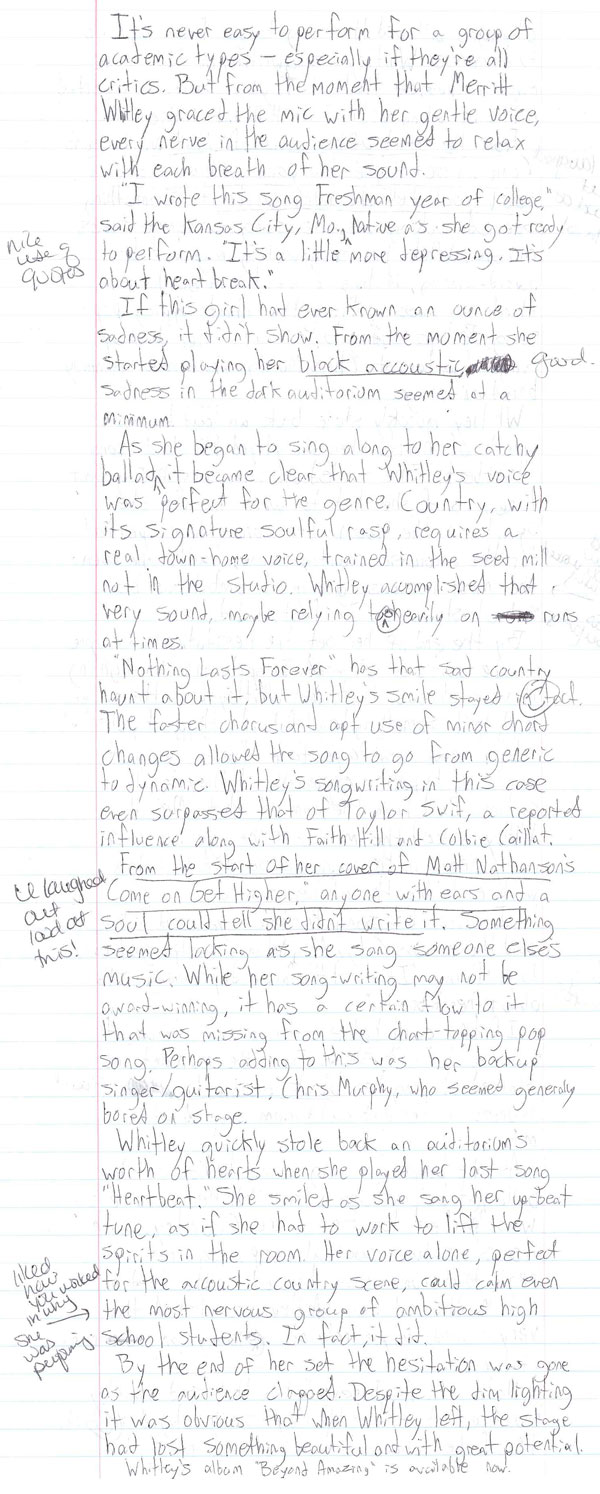 It's never easy to perform for a group of
academic types – especially if they're all
critics. But from the moment that Merritt
Whitley graced the mic with her gentle voice,
every nerve in the audience seemed to relax
with each breath of her sound.
"I wrote this song Freshman year of college,"
said the Kansas City, Mo., Native as she got ready
to perform. "It's a little more depressing. It's
about heart break."
nice
use of
quotes
If this girl had ever known an ounce of
sadness, it didn't show. From the moment she
started playing her black accoustic good.
sadness in the dark auditorium seemed at a
minimum.
As she began to sing along to her catchy
ballad, it became clear that Whitley's voice
was perfect for the genre. Country, with
its signature soulful rasp, requires a
real down-home voice, trained in the seed mill
not in the studio. Whitley accomplished that
very sound, maybe relying too heavily on runs
at times.
"Nothing Lasts Forever" has that sad country
haunt about it, but Whitley's smile stayed intact.
The faster chorus and apt use of minor chord
changes allowed the song to go from generic
to dynamic. Whitley's songwriting in this case
even surpassed that of Taylor Swift, a reported
influence along with Faith Hill and Colbie Caillat.
From the start of her cover of Matt Nathanson's
"Come on Get Higher," anyone with ears and a
soul could tell she didn't write it. Something
I laughed
out
loud at
this!
seemed lacking as she sang someone else's
music. While her song-writing may not be
award-winning, it has a certain flow to it
that was missing from the chart-topping pop
song. Perhaps adding to this was her backup
singer/guitarist, Chris Murphy, who seemed generally
bored on stage.
Whitley quickly stole back an auditorium's
worth of hearts when she played her last song
"Heartbeat." She smiled as she sang her up-beat
tune, as if she had to work to lift the
spirits in the room. Her voice alone, perfect
for the accoustic country scene, could calm even
the most nervous group of ambitious high
school students. In fact, it did.
liked
how
you worked
in why
she
was
By the end of her set the hesitation was gone
as the audience clapped. Despite the dim lighting
it was obvious that when Whitley left, the stage
had lost something beautiful and with great potential.
Whitley's album "Beyond Amazing" is available now.